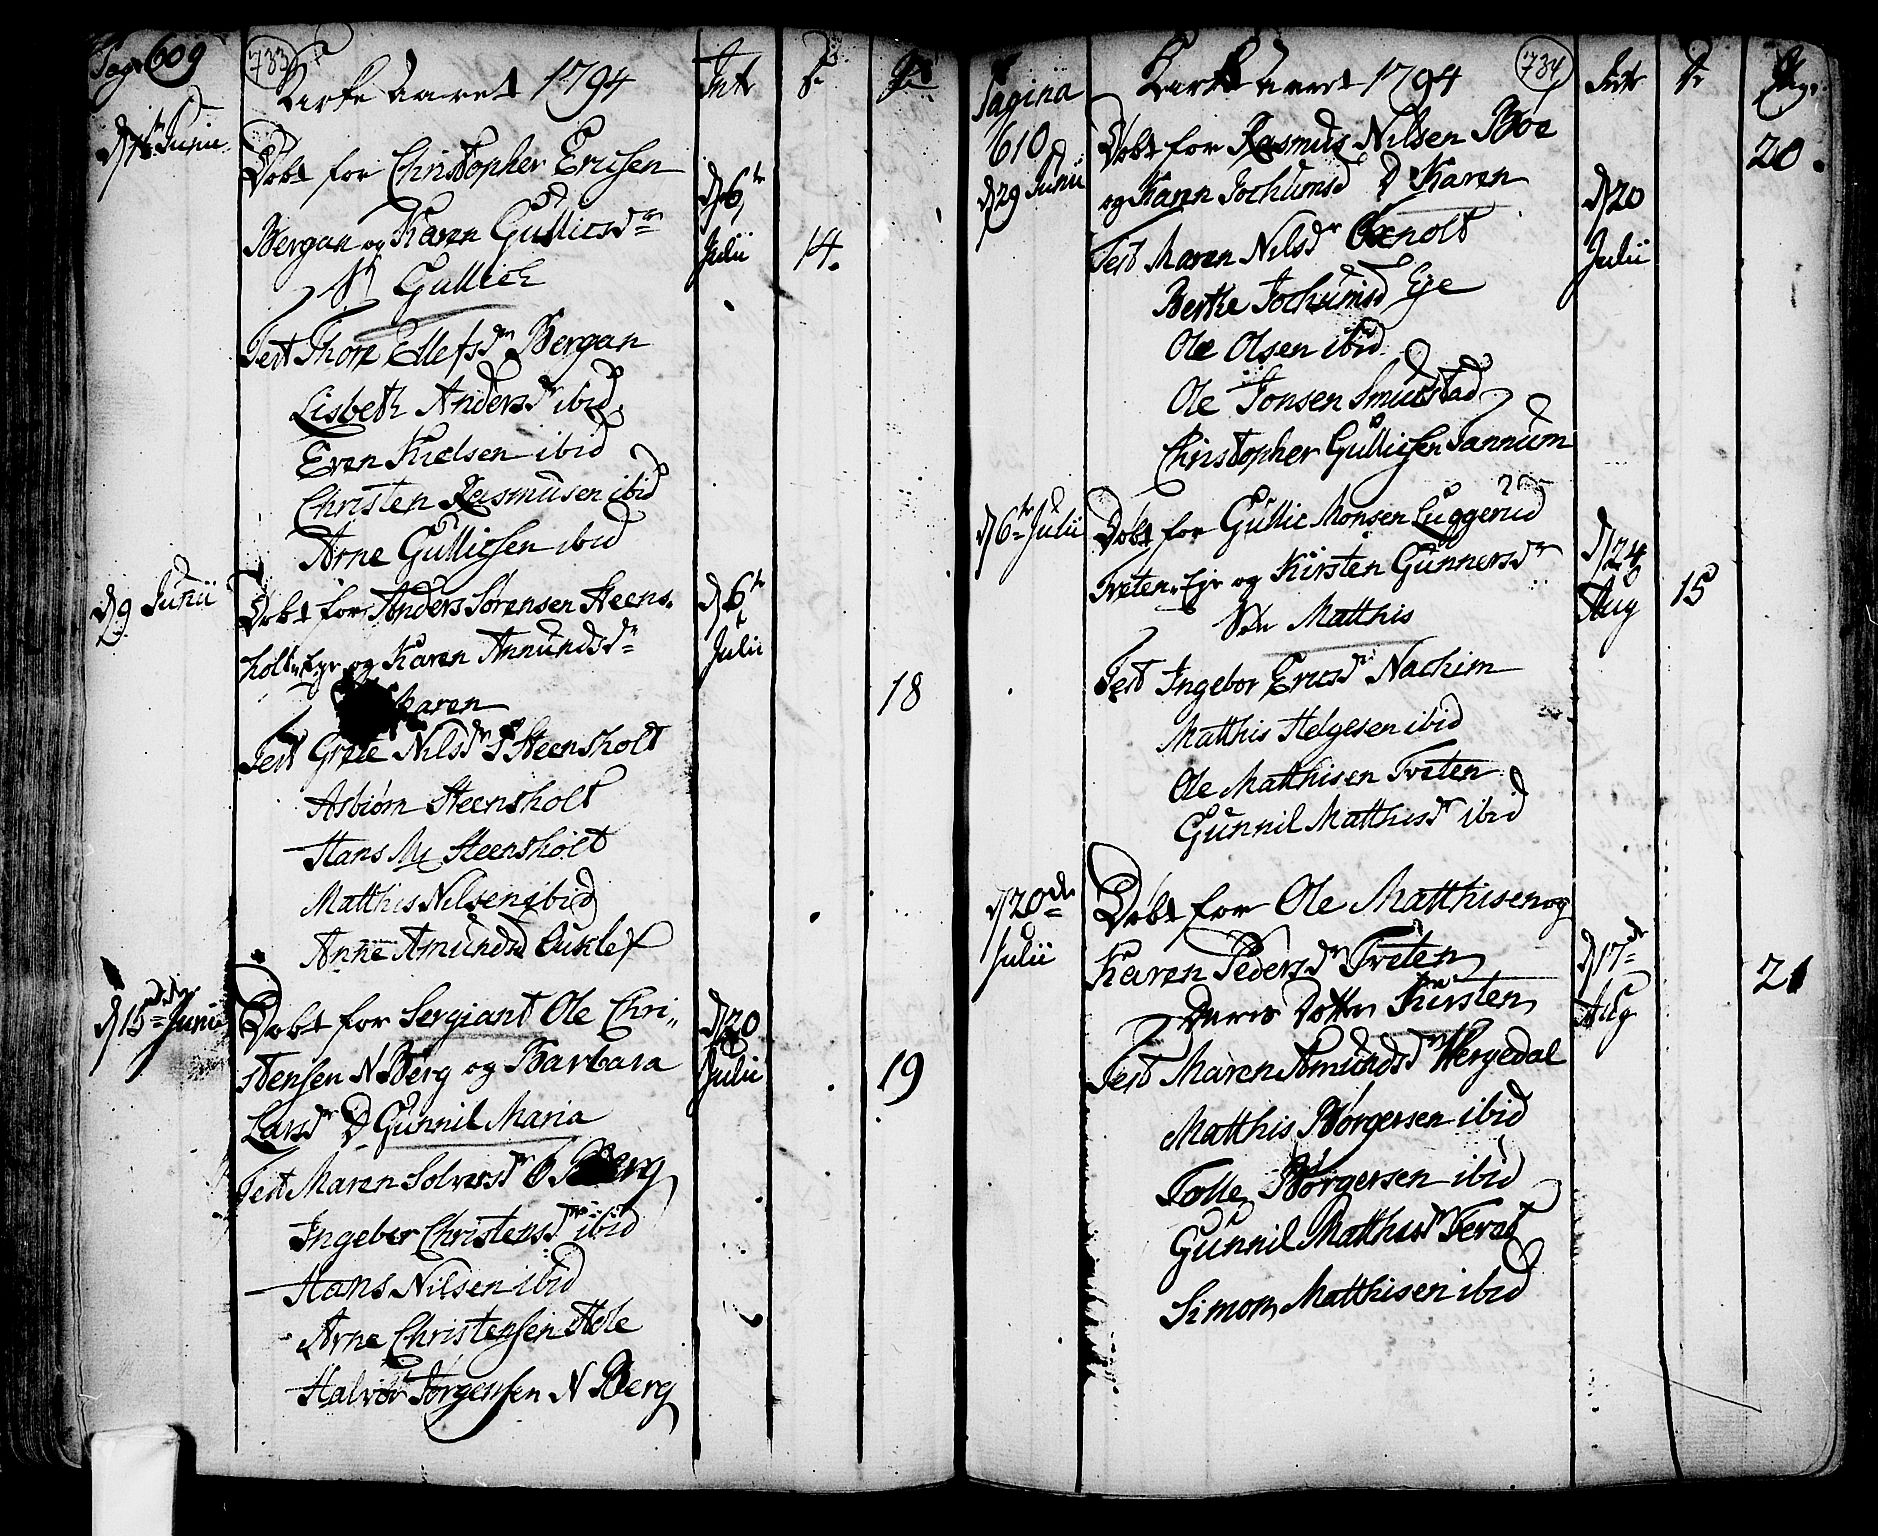 Pag: 609 733
Kirke Aaret 1794 Int
d 9 Junii
Døbt for Christopher Ericsen
Bergan og Karen Gullicsdr
S Gullich
d 6 Julii 14.
Test Thore Ellefsdr Bergan
Lisbeth Andersdr ibid
Even Kielsen ibid
Christen Rasmusen ibid
Arne Gullicsen ibid
d 9 Junii
Døbt for Anders Sørensen Steens-
holt Eye og Karen Amundsdr
Karen
d 6 Julii 18
Test Grete Nilsdr Steensholt
Asbiørn Steensholt
Hans M Steensholt
Matthis Nilsen ibid
Anne Amundsd
d 15de Junii
Døbt for Sergiant Ole Chri-
stensen N Berg og Barbara
Larsdr D Gunnil Maria
d 20 Julii 19
Test Maren Solvesdr Berg
Ingeber Christensdr ibid
Hans Nilsen ibid
Arne Christensen Hole
Halvor Jørgensen N Berg
Pagina 610 734
Kirke Aaret 1794 Int
d 29 Junii
Døbt for Rasmus Nilsen Boe
og Karen Jochumsd D Karen
d 20 Julii 20.
Test Maren Nilsdr
Berthe Jochumsd Eje
Ole Olsen ibid
Ole Jonsen Smucstad
Christopher Gullicsen Sannum
d 6 Julii
Døbt for Gullic Monsen Luggerud
Tveten Eje og Kirsten Gunnersdr
Søn Matthis
d 24 Aug 15
Test Ingebor Ericsdr Nachim
Matthis Helgesen ibid
Ole Matthisen Tveten
Gunnil Matthisdr ibid
d 20de Julii
Døbt for Ole Matthisen og
Karen Pedersdr Tveten
Deris Dotter Kirsten
d 17de Aug 21
Test Maren Amundsdr Hergedal
Matthis Børgersen ibid
Tolle Børgersen ibid
Gunnil Matthisdr
Simon Matthisen ibid